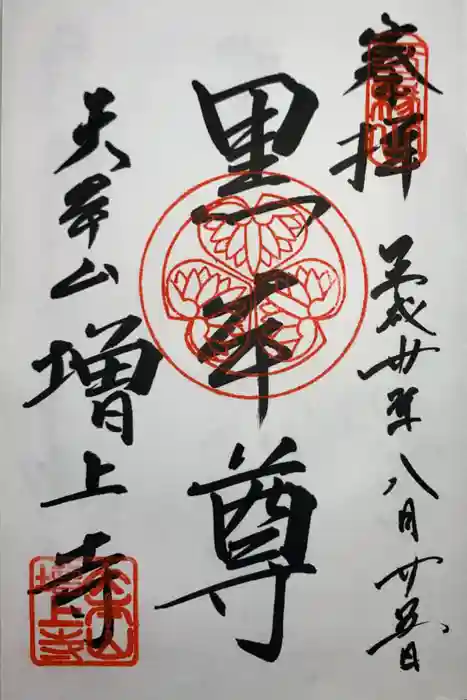 奉拝
平成廿年八月廿五日
黒夲尊
大夲山
増上寺